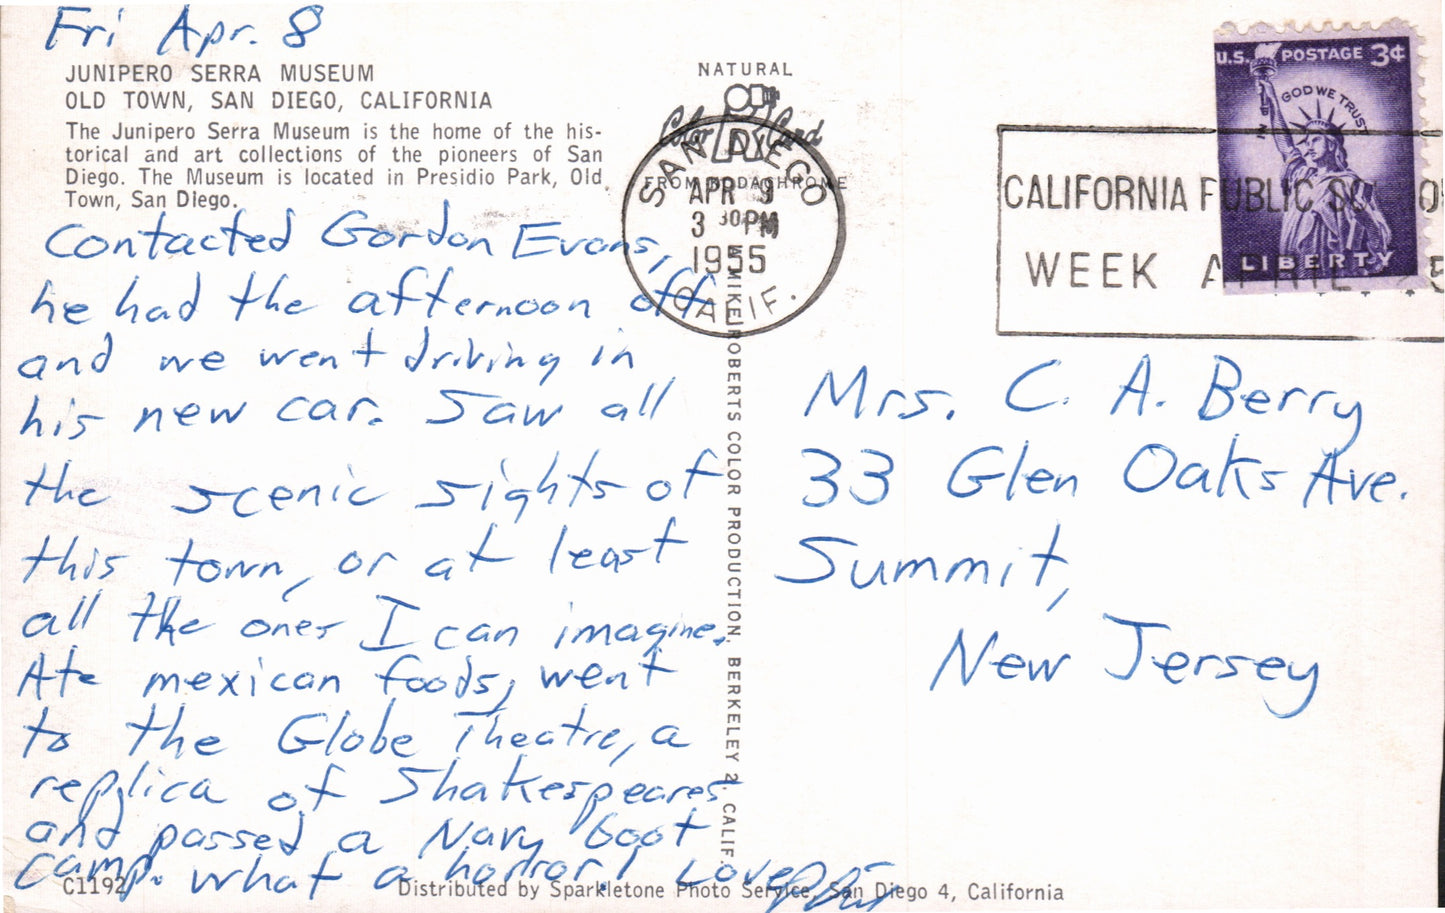 Fri Apr. 8
JUNIPERO SERRA MUSEUM
OLD TOWN, SAN DIEGO, CALIFORNIA
The Junipero Serra Museum is the home of the his-
torical and art collections of the pioneers of San
Diego. The Museum is located in Presidio Park, Old
Town, San Diego.
Contacted Gordon Evans,
he had the afternoon off
and we went driving in
his new car. Saw all
the scenic sights of
this town, or at least
all the ones I can imagine.
Ate mexican foods, went
to the Globe Theatre, a
replica of Shakespeares
and passed a Navy boot
camp. what a horror! Love
C1192
Distributed by Sparkletone Photo Service, San Diego 4, California
NATURAL
Color Card
FROM KODACHROME
MIKE ROBERTS COLOR PRODUCTION, BERKELEY 2, CALIF.
SAN DIEGO
APR 9
3 30 PM
1955
CALIF.
CALIFORNIA PUBLIC
WEEK APRIL
U.S. POSTAGE 3¢
IN GOD WE TRUST
LIBERTY
Mrs. C. A. Berry
33 Glen Oaks Ave.
Summit,
New Jersey